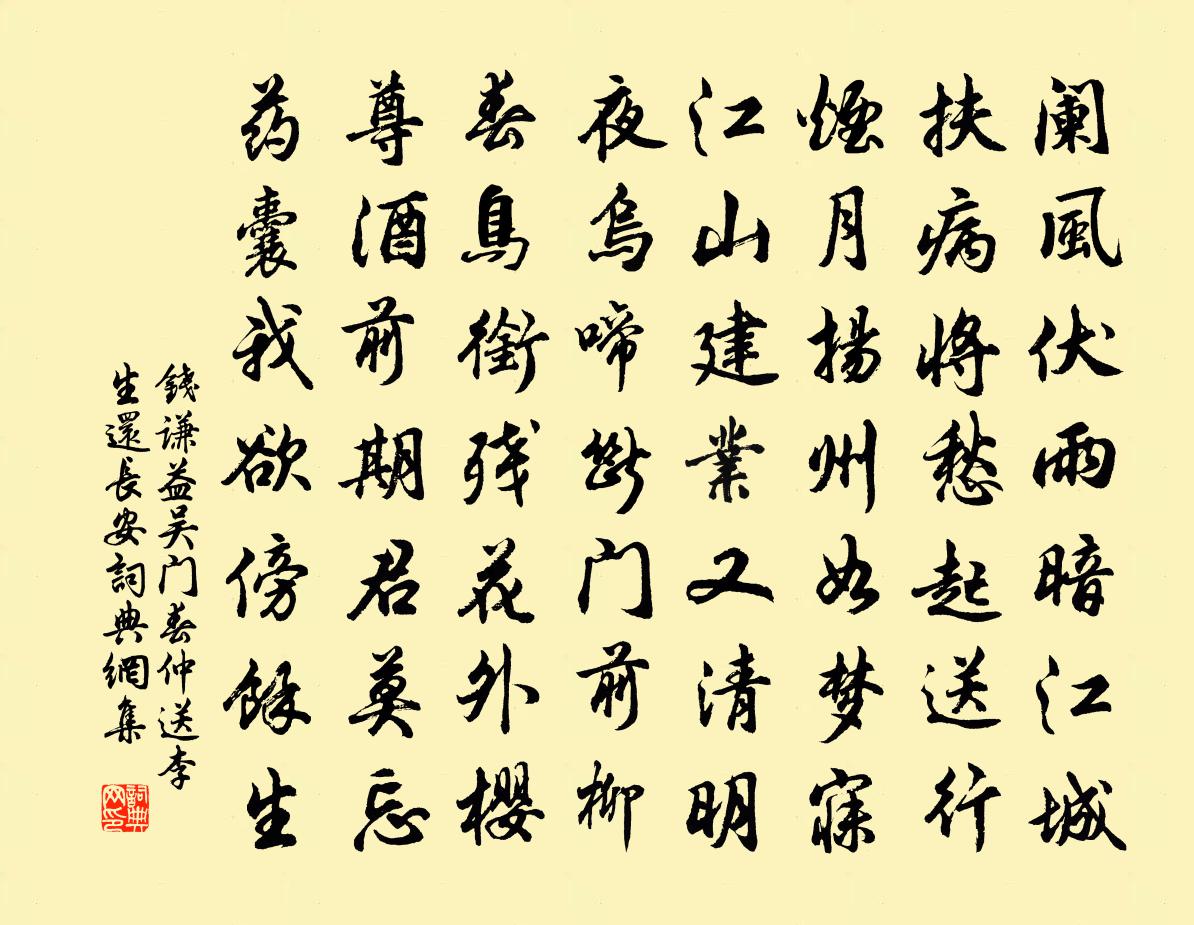 阑風伏雨暗江城
扶病将愁起送行
煙月揚州如梦寐
江山建業又清明
夜烏啼断门前柳
春鳥銜残花外櫻
尊酒前期君莫忘
药囊我欲傍餘生
錢謙益吴门春仲送李
生還長安詞典網集
詞典网印